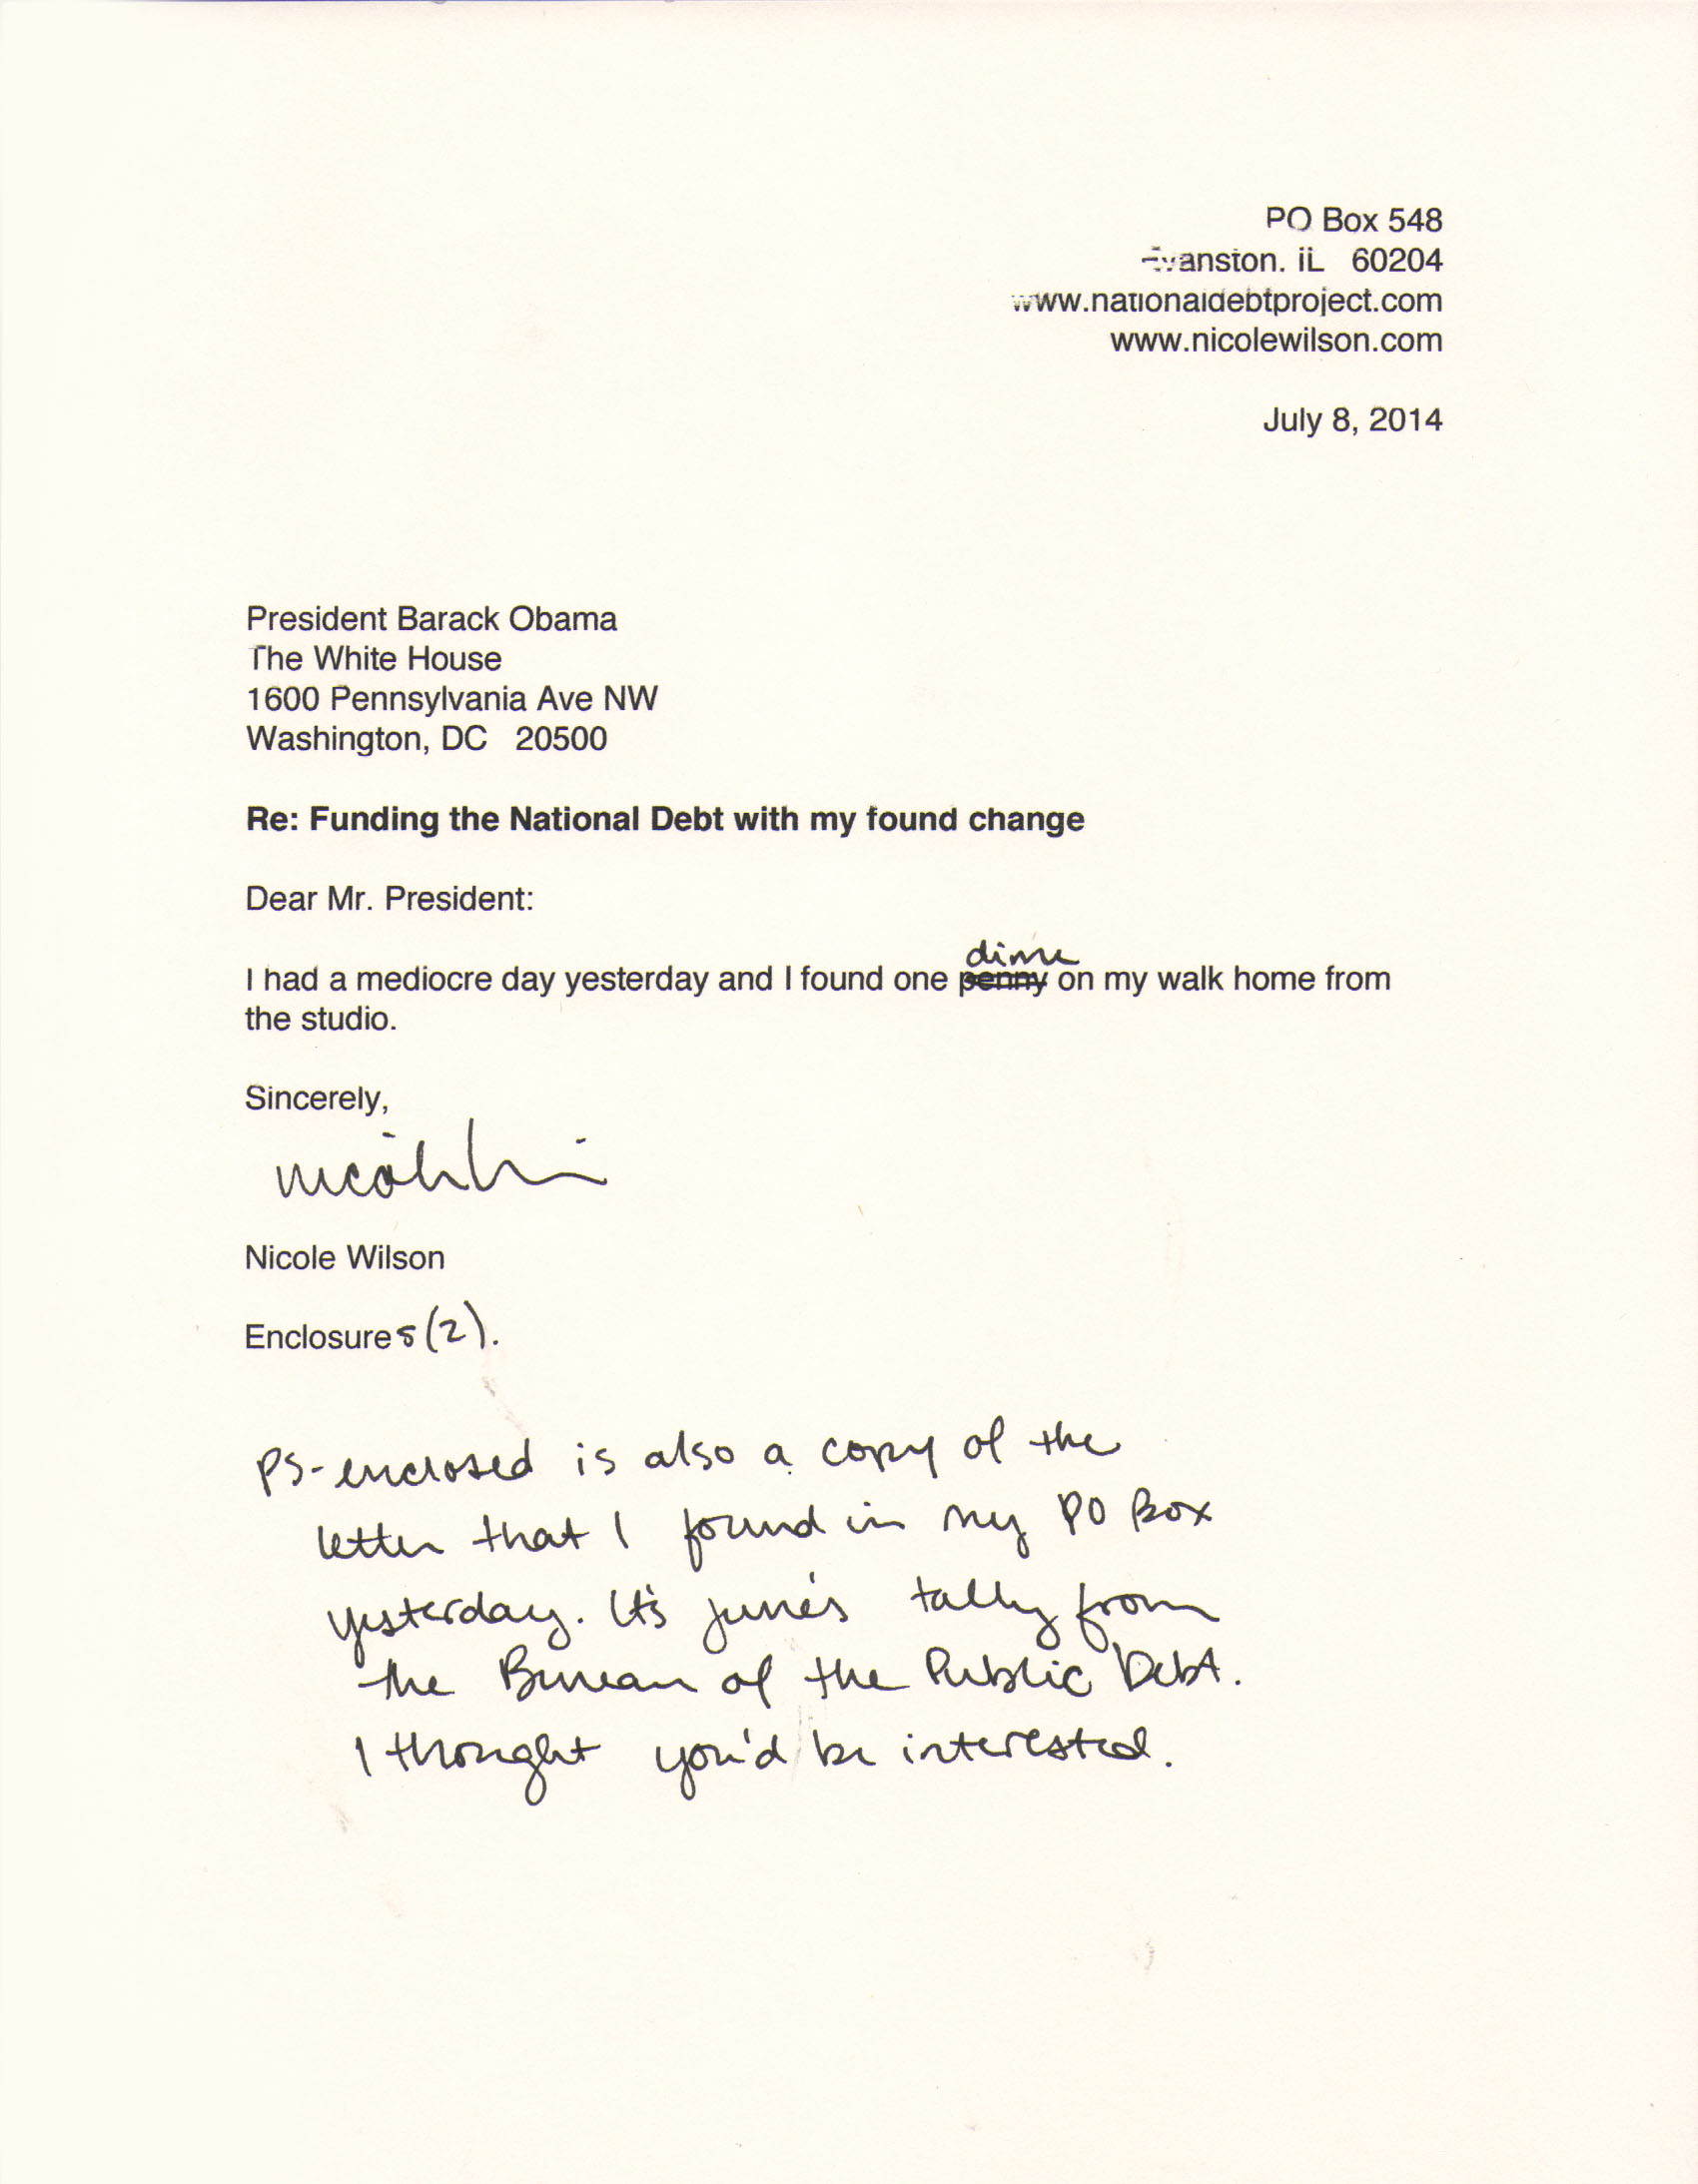 PO Box 548
Evanston, IL 60204
www.nationaldebtproject.com
www.nicolewilson.com
July 8, 2014
President Barack Obama
The White House
1600 Pennsylvania Ave NW
Washington, DC 20500
Re: Funding the National Debt with my found change
Dear Mr. President:
dime
I had a mediocre day yesterday and I found one penny on my walk home from
the studio.
Sincerely,
Nicole Wilson
Enclosures (2).
PS-enclosed is also a copy of the
letter that I found in my PO Box
yesterday. It's June's tally from
the Bureau of the Public Debt.
I thought you'd be interested.